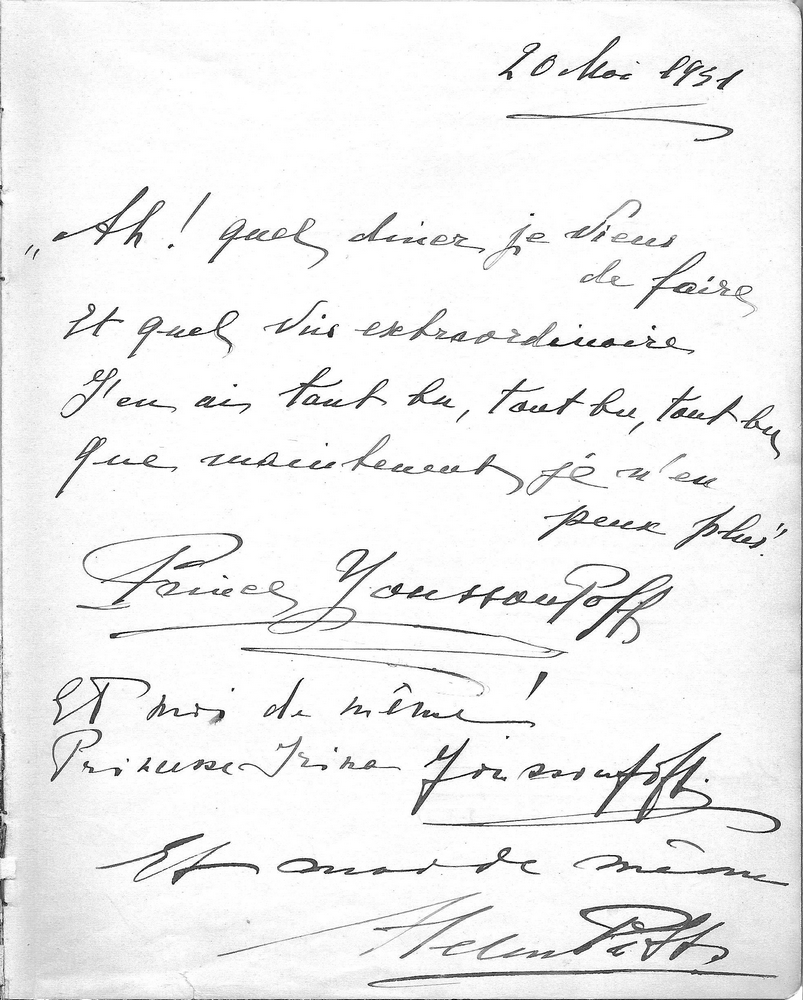 20 Mai 1951
„Ah! quel diner je viens
de faire
Et quel vin extraordinaire
J'en ai tant bu, tant bu, tant bu
Que maintenant je n'en
peux plus!"
Prince Youssoupoff
Et moi de même!
Princesse Irina Youssoupoff.
Et moi de même